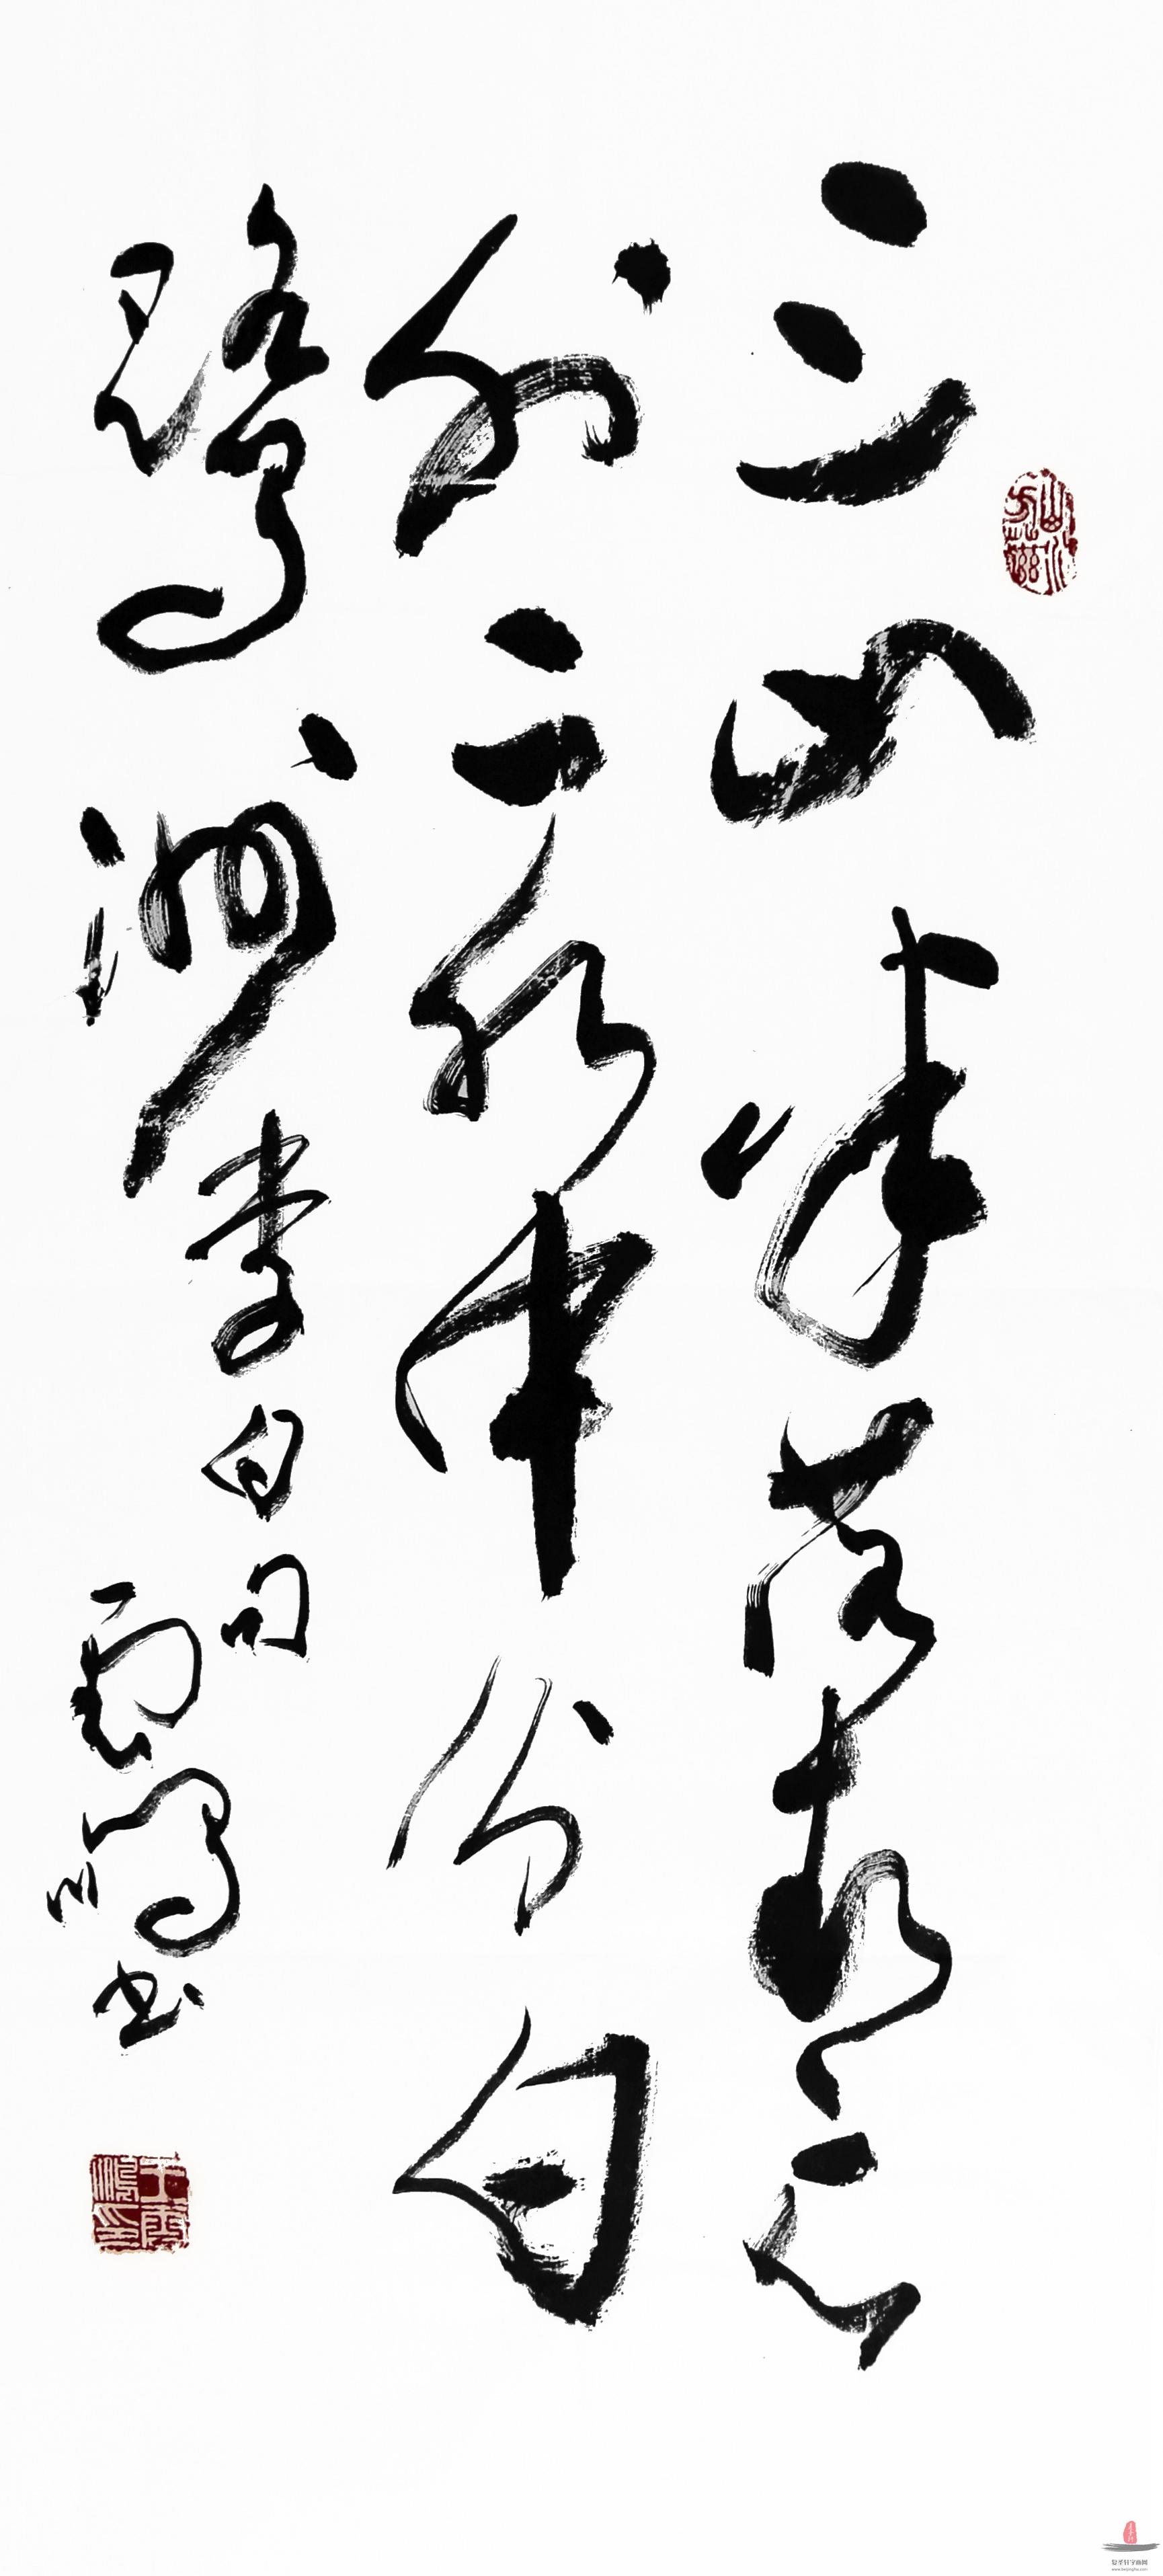 三山半落青天
外二水中分白
鷺洲 李白句
雲 书